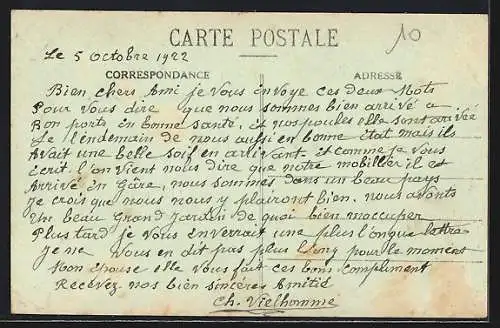 CARTE POSTALE
10
Le 5 Octobre 1922
CORRESPONDANCE
ADRESSE
Bien chers Ami je Vous en Voye ces deux Mots
Pour Vous dire que nous sommes bien arrivé a
Bon ports en bonne santé, et nos poules elle sont arrivée
Le Lendemain de nous aussi en bonne état mais ils
Avait une belle soif en arrivant. et comme je vous
écrit l'on vient nous dire que notre mobiller il est
Arrivé en Gâre, nous sommes dans un beau pays
Je crois que nous nous y plairont bien. nous avonts
Un beau Grand Jardin de quoi bien m'occuper
Plus tard je Vous enverrait une plus longue lettre
Je ne Vous en dit pas plus Long pour le moment
Mon épouse elle Vous fait ces bons compliment
Recevez nos bien sincères Amitié
Ch. Vielhomme